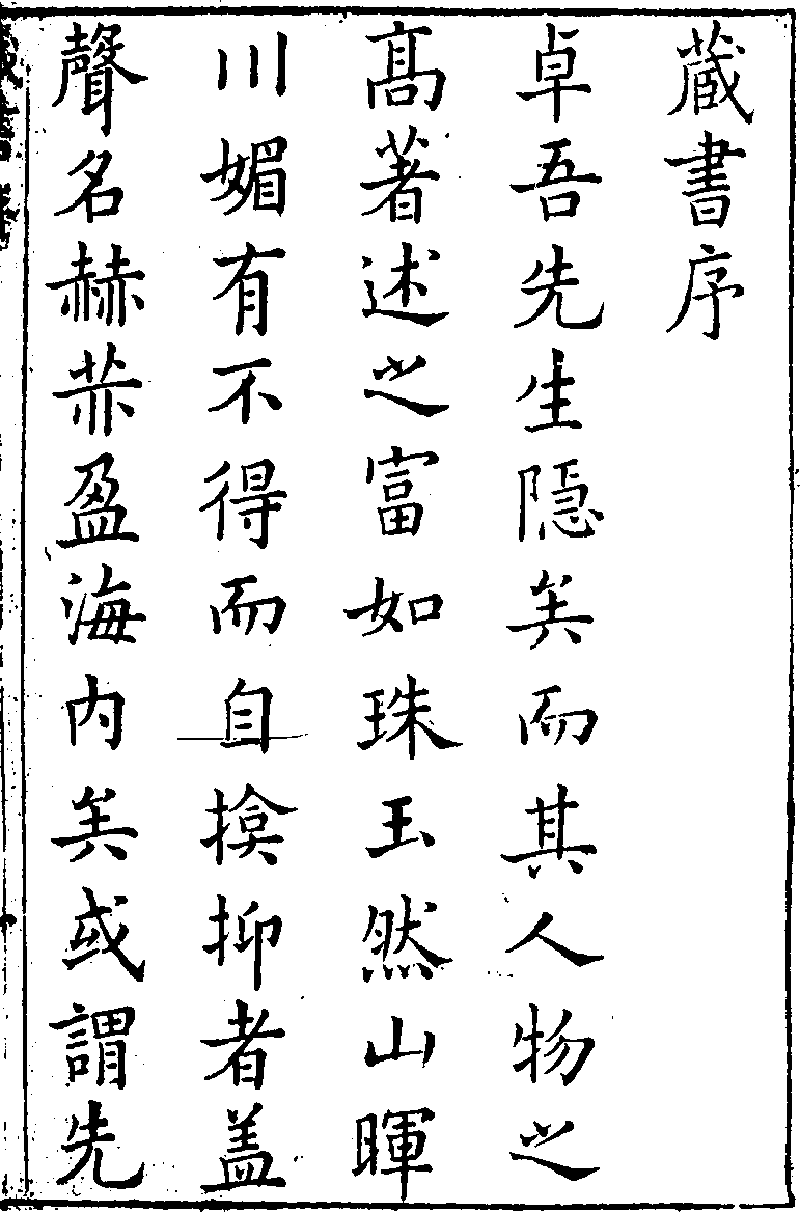 蔵書序
卓吾先生隠矣而其人物之
髙著述之富如珠玉然山暉
川媚有不得而自揜抑者盖
聲名赫赫盈海内矣或謂先